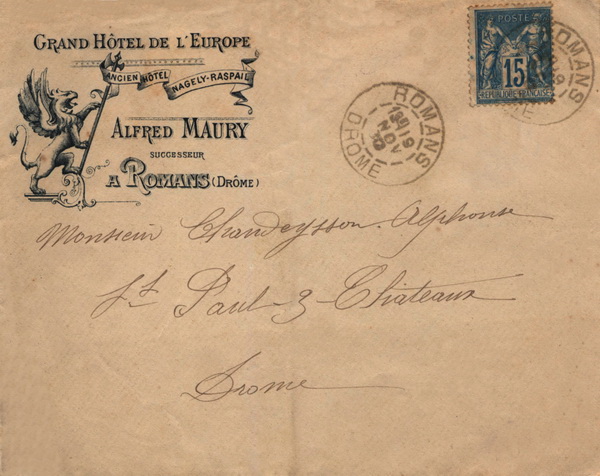 GRAND HÔTEL DE L'EUROPE
ANCIEN HÔTEL
NAGELY-RASPAIL
ALFRED MAURY
SUCCESSEUR
A ROMANS (DRÔME)
POSTE
15
REPUBLIQUE FRANÇAISE
ROMANS
19
NOV
DROME
ROMANS
ME
Monsieur Chandeysson Alphonse
St Paul-3-Chateaux
Drome